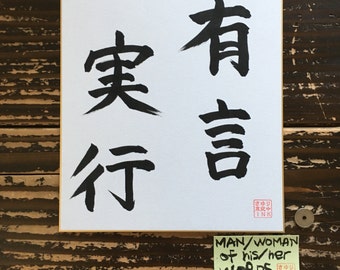 有言
実行
MAN/WOMAN
of his/her
WORDS